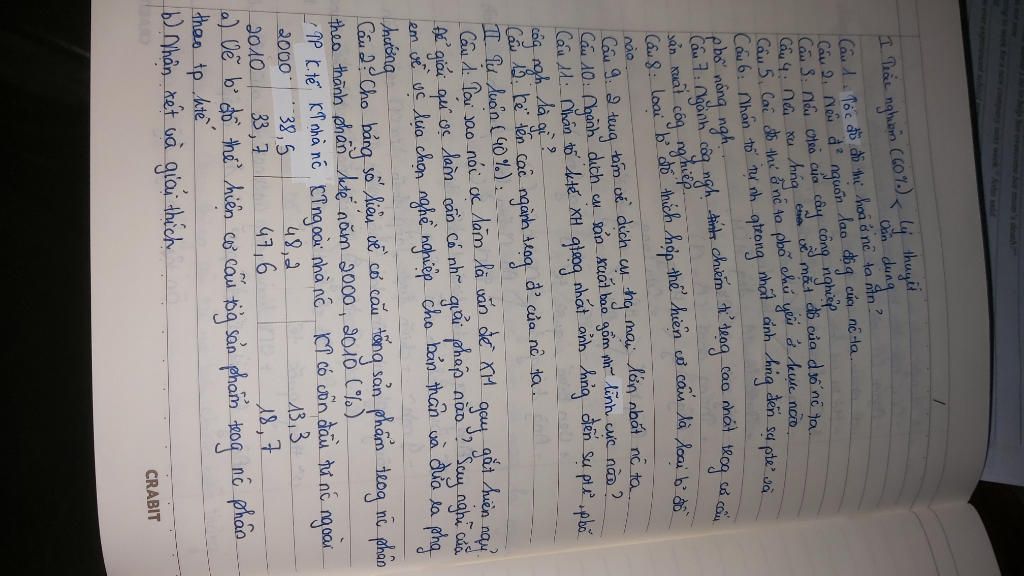 I. Trắc nghiệm (60%) < Lý thuyết
Vận dụng
Câu 1. Tốc độ đô thị hoá ở nc ta ntn?
Câu 2. Nêu đ² nguồn lao động của nc ta.
Câu 3. Nêu của cây công nghiệp
Câu 4. Nêu xu hg về mật độ của dsố nc ta
Câu 5. Các đô thị ở nc ta phổ chủ yếu ở kvực nào.
Câu 6. Nhân tố tự nh qtrong nhất ảnh hg đến sự ptr và
phbố nông ngh.
Câu 7. Ngành côg ngh chiếm tỉ trọng cao nhất trog cơ cấu
sản xuất côg nghiệp
Câu 8: loại b² đồ thích hợp thể hiện cơ cấu là loại b² đồ
nào
Câu 9. 2 trug tâm về dịch vụ thg mại lớn nhất nc ta
Câu 10: Ngành dịch vụ sản xuất bao gồm lĩnh vực nào?
Câu 11: Nhân tố ktế XH qtrog nhất ảnh hg đến sự ptr, phbố
côg ngh là gì?
Câu 12 kể tên các ngành trog đ² của nc ta.
II. Tự luận (40%):
Câu 1: Tại sao nói vc làm là vấn đề XH gay gắt hiện nay,
Để giải qu vc làm cần có nh giải pháp nào? Suy nghĩ của
em về vc lựa chọn nghề nghiệp cho bản thân và đưa ra phg
hướng
Câu 2: Cho bảng số liệu về cơ cấu tổng sản phẩm trog nc phân
theo thành phần ktế năm 2000, 2010 (%)
TP k.tế KT nhà nc KT ngoài nhà nc KT có vốn đầu tư nc ngoài
2000 38,5 48,2 13,3
2010 33,7 47,6 18,7
a) Vẽ b² đồ thể hiện cơ cấu tổg sản phẩm trog nc phân
theo tp ktế
b) Nhận xét và giải thích.
CRABIT